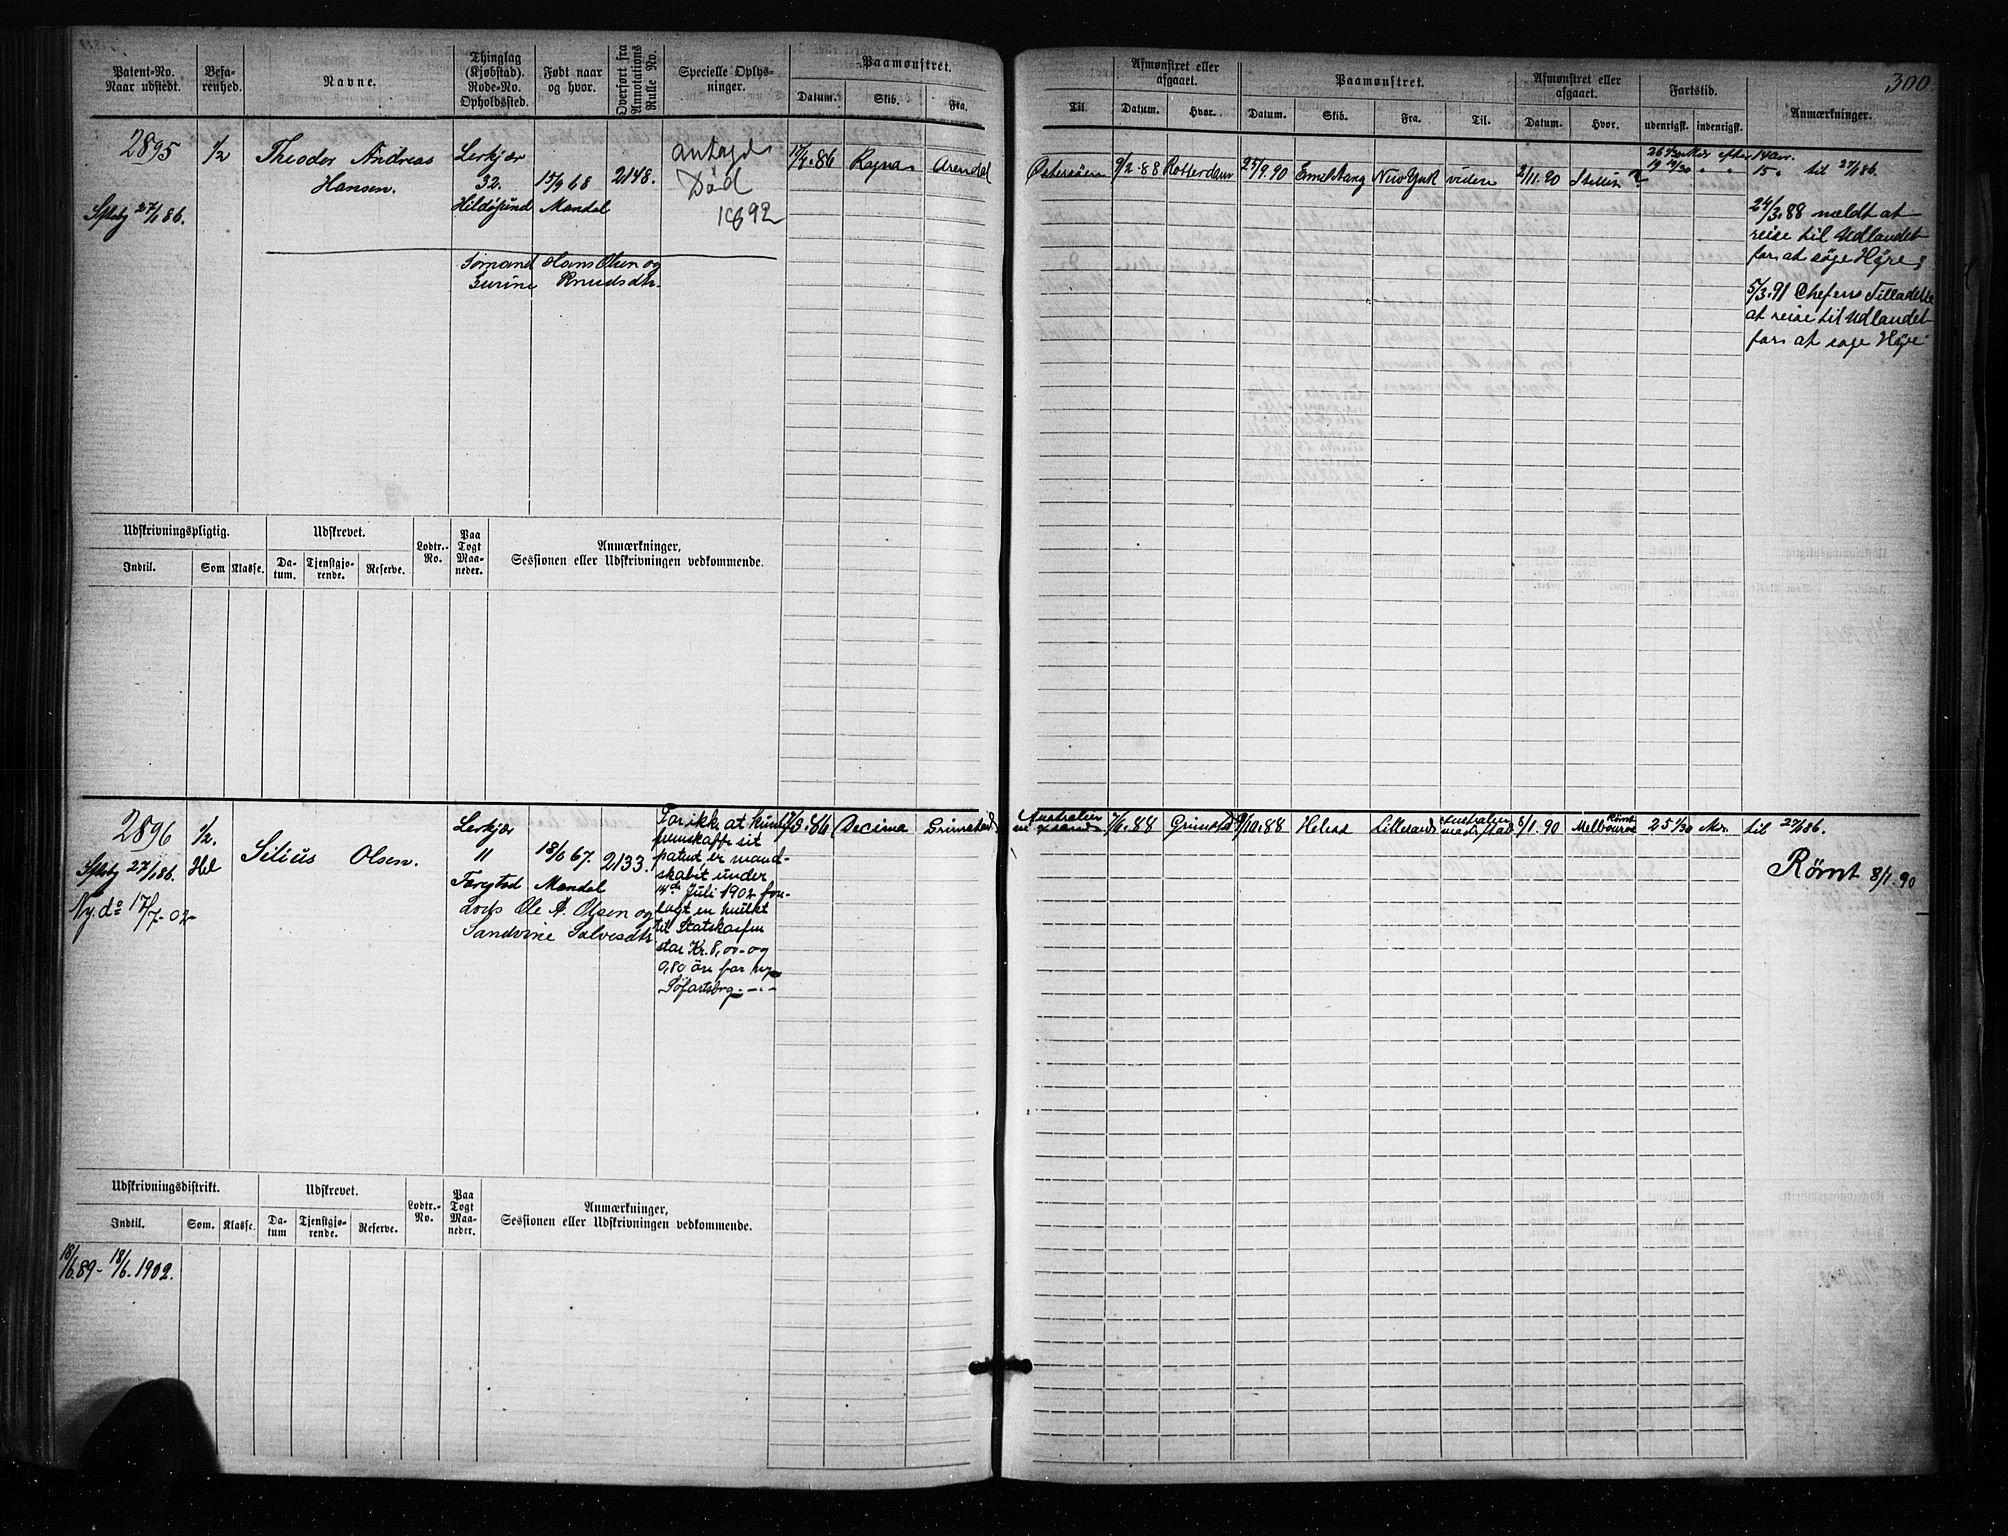 300.
Patent-No. Naar udstedt.
Befarenhed.
Navne.
Thinglag (Kjøbstad). Rode-No. Opholdssted.
Født naar og hvor.
Overført fra Annotations Rulle No.
Specielle Oplysninger.
Paamønstret.
Datum. Skib. Fra.
Til.
Afmønstret eller afgaaet.
Datum. Hvor.
Paamønstret.
Datum. Skib. Fra. Til.
Afmønstret eller afgaaet.
Datum. Hvor.
Fartstid.
udenrigsk. indenrigsk.
Anmærkninger.
2895
Sftsbg 27/1 86.
1/2
Theodor Andreas
Hansen.
Lerkjær
32.
Hildøsund
15/9 68
Mandal
2148.
antages
Død
1892
Sømand Hans Olsen og
Gurine Knudsdtr.
17/4.86 Ragna Arendal
Østersøen 9/2.88 Rotterdam 25/9.90 Emil Stang New York videre 2/11.90 Stettin ?
til 27/1 86.
24/3.88 meldt at
reise til Udlandet
for at søge Hyre.
5/3.91 Chefens Tilladelse
at reise til Udlandet
for at søge Hyre
Udskrivningspligtig.
Indtil. Som Klasse.
Udskrevet.
Datum. Tjenstgjørende. Reserve.
Lodtr.-No.
Paa Togt Maaneder.
Anmærkninger,
Sessionen eller Udskrivningen vedkommende.
2896
Sftsbg 27/1 86.
Ny do 17/7-02-
1/2.
Hel
Silius Olsen.
Lerkjær
11
Farestad
18/6 67.
Mandal
2133.
Lods Ole A. Olsen og
Sandvine Salvesdtr.
For ikke at kunne
fremskaffe sit
patent, er mand-
skabet under
14de Juli 1902 fore-
lagt en mulkt
til Statskassen
stor Kr. 8,00 og
0,80 öre for ny
Søfartsbog.
Decima Grimstad
Australien
7/6.88 Grimstad 9/10.88 Helios Lillesand Australien 8/1.90 Rømt Melbourne 25 1/30 Mdr. til 27/1 86.
Rømt 8/1.90
Udskrivningsdistrikt.
Indtil. Som. Klasse.
Udskrevet.
Datum Tjenstgjørende. Reserve.
Lodtr.-No.
Paa Togt Maaneder.
Anmærkninger,
Sessionen eller Udskrivningen vedkommende.
18/6.89- 18/6.1902.